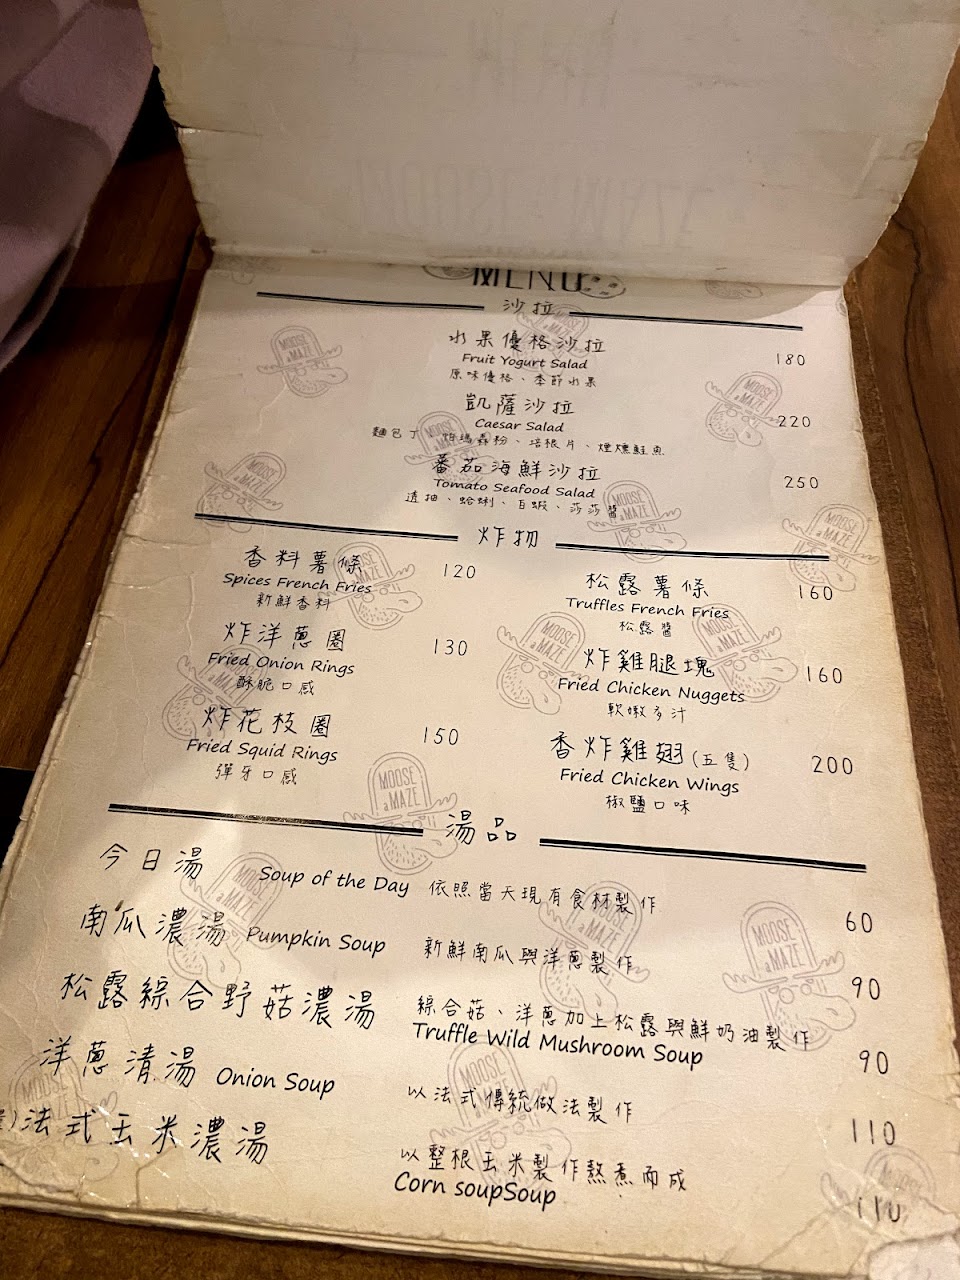 MENU
沙拉
水果優格沙拉 180
Fruit Yogurt Salad
原味優格、季節水果
凱薩沙拉 220
Caesar Salad
麵包丁、帕瑪森粉、培根片、煙燻鮭魚
蕃茄海鮮沙拉 250
Tomato Seafood Salad
透抽、蛤蜊、白蝦、莎莎醬
炸物
香料薯條 120
Spices French Fries
新鮮香料
松露薯條 160
Truffles French Fries
松露醬
炸洋蔥圈 130
Fried Onion Rings
酥脆口感
炸雞腿塊 160
Fried Chicken Nuggets
軟嫩多汁
炸花枝圈 150
Fried Squid Rings
彈牙口感
香炸雞翅(五隻) 200
Fried Chicken Wings
椒鹽口味
湯品
今日湯 Soup of the Day 依照當天現有食材製作 60
南瓜濃湯 Pumpkin Soup 新鮮南瓜與洋蔥製作 90
松露綜合野菇濃湯 綜合菇、洋蔥加上松露與鮮奶油製作 90
Truffle Wild Mushroom Soup
洋蔥清湯 Onion Soup 以法式傳統做法製作 110
)法式玉米濃湯 以整根玉米製作熬煮而成 110
Corn soupSoup
MOOSE
a MAZE